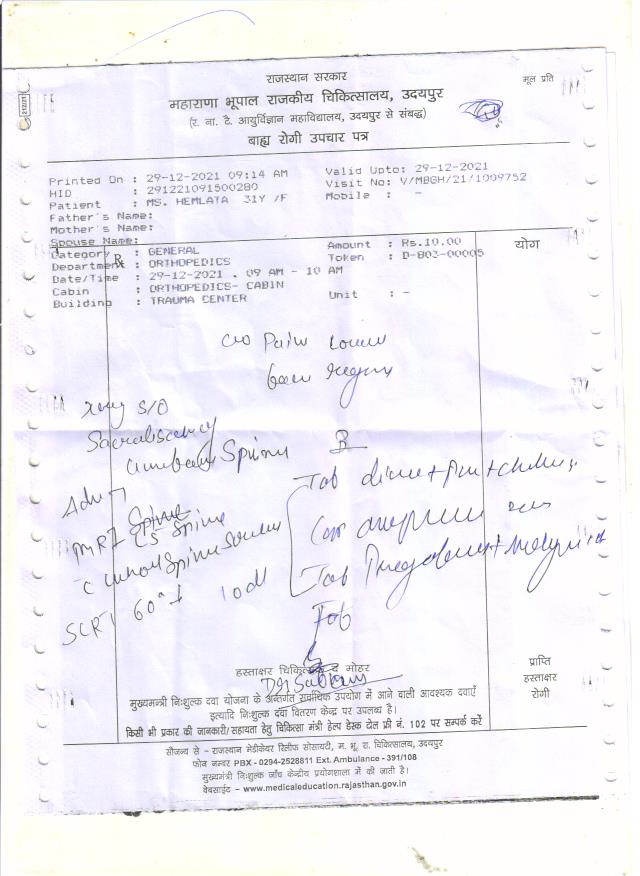 राजस्थान सरकार
मूल प्रति
महाराणा भूपाल राजकीय चिकित्सालय, उदयपुर
(र. ना. टै. आयुर्विज्ञान महाविद्यालय, उदयपुर से संबद्ध)
बाह्य रोगी उपचार पत्र
Printed On : 29-12-2021 09:14 AM Valid Upto: 29-12-2021
HID : 291221091500280 Visit No: V/MBGH/21/1009752
Patient : MS. HEMLATA 31Y /F Mobile : -
Father's Name:
Mother's Name:
Spouse Name:
Category : GENERAL Amount : Rs.10.00 योग
Department : ORTHOPEDICS Token : D-803-00005
Date/Time : 29-12-2021 . 09 AM - 10 AM
Cabin : ORTHOPEDICS- CABIN
Building : TRAUMA CENTER Unit : -
c/o Pain lower
xray S/O
Spine
Adv
MRI LS Spine
c whole Spine
Tab
Tab
Tab
हस्ताक्षर चिकित्सक व मोहर
प्राप्ति
हस्ताक्षर
रोगी
मुख्यमंत्री निःशुल्क दवा योजना के अन्तर्गत सर्वाधिक उपयोग में आने वाली आवश्यक दवाएँ
इत्यादि निःशुल्क दवा वितरण केन्द्र पर उपलब्ध है।
किसी भी प्रकार की जानकारी/सहायता हेतु चिकित्सा मंत्री हेल्प डेस्क टोल फ्री नं. 102 पर सम्पर्क करें
सौजन्य से - राजस्थान मेडीकेयर रिलीफ सोसायटी, म. भू. रा. चिकित्सालय, उदयपुर
फोन नम्बर PBX - 0294-2528811 Ext. Ambulance - 391/108
मुख्यमंत्री निःशुल्क जाँच केन्द्रीय प्रयोगशाला में की जाती है।
वेबसाईट - www.medicaleducation.rajasthan.gov.in